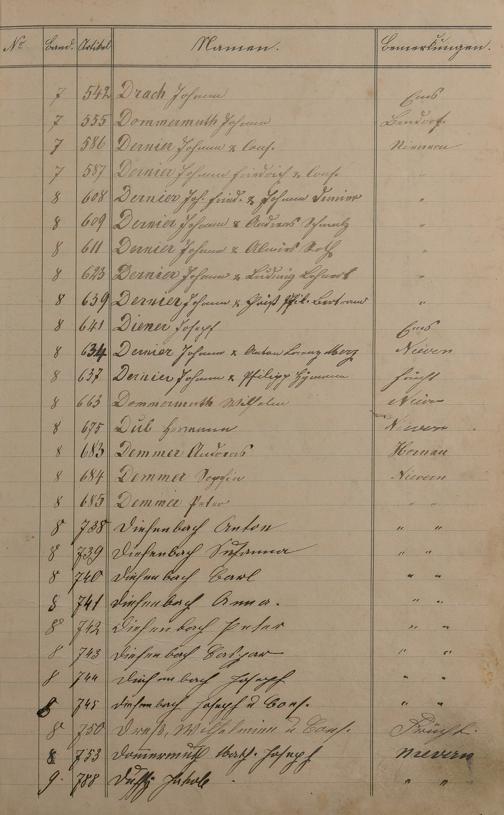 No. Band. Artikel Namen. Bemerkungen.
7 542 Drach Johann Ems
7 555 Dommermuth Johann Bendorf
7 586 Dernier Johann & Cons. Nievern
7 587 Dernier Johann Friedrich & Cons. "
8 608 Dernier Joh. Fried. & Johann "
8 609 Dernier Johann & Andreas "
8 611 Dernier Johann & "
8 623 Dernier Johann & Ludwig "
8 639 Dernier Johann & "
8 641 Diener Josef Ems
8 634 Dernier Johann & Anton Lorenz Nievern
8 637 Dernier Johann & Philipp Frücht
8 663 Dommermuth Wilhelm Nievern
8 675 Hermann Nievern
8 683 Demmer Andreas
8 684 Demmer Sophia Nievern
8 685 Demmer Peter " "
8 738 Diefenbach Anton " "
8 739 Diefenbach Susanna " "
8 740 Diefenbach Carl " "
8 741 Diefenbach Anna. " "
8 742 Diefenbach Peter " "
8 743 Diefenbach Caspar " "
8 744 Diefenbach Joseph " "
8 745 Diefenbach Joseph u Cons. " "
8 750 Wilhelmine u Cons. Frücht.
8 753 Dommermuth Math. Joseph Nievern
9. 788 Jakob " "